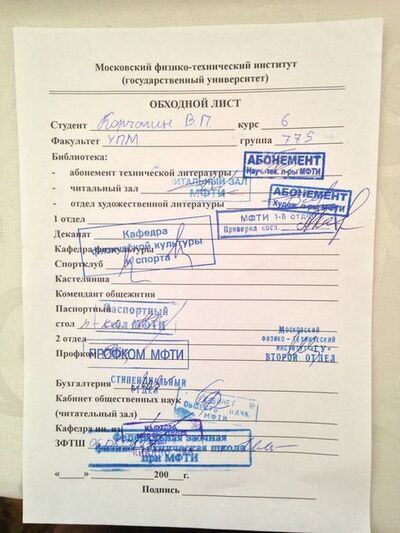 Московский физико-технический институт
(государственный университет)
ОБХОДНОЙ ЛИСТ
Студент Корчагин В.П. курс 6
Факультет УПМ группа 775
Библиотека:
- абонемент технической литературы АБОНЕМЕНТ Науч.-тех. л-ры МФТИ
- читальный зал ЧИТАЛЬНЫЙ ЗАЛ МФТИ
- отдел художественной литературы АБОНЕМЕНТ Худож. л-ры МФТИ
1 отдел МФТИ 1-й отдел Проверил
Деканат
Кафедра физкультуры Кафедра физической культуры и спорта
Спортклуб
Кастелянша
Комендант общежития
Паспортный
стол Паспортный стол МФТИ
2 отдел Московский физико-технический институт ГУ ВТОРОЙ ОТДЕЛ
Профком ПРОФКОМ МФТИ
Бухгалтерия СТИПЕНДИАЛЬНЫЙ ОТДЕЛ
Кабинет общественных наук КАБИНЕТ ОБЩЕСТВ. НАУК МФТИ
(читальный зал)
Кафедра ин. яз. КАФЕДРА
ЗФТШ Федеральная заочная физико-техническая школа при МФТИ
«____» ________ 200__г.
Подпись